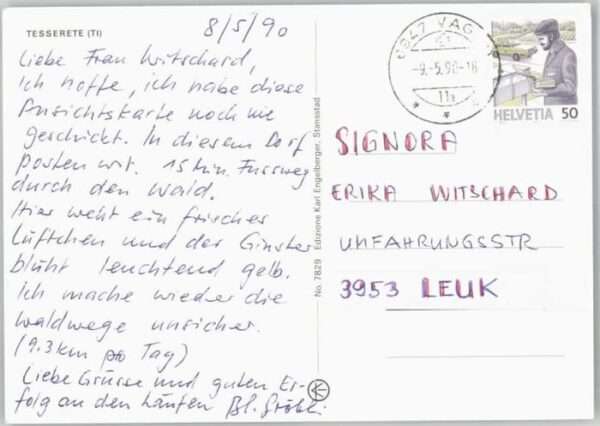 TESSERETE (TI)
8/5/90
Liebe Frau Witschard,
Ich hoffe, ich habe diese
Ansichtskarte noch nie
geschickt. In diesem Dorf
posten wir. 15 Min. Fussweg
durch den Wald.
Hier weht ein frisches
Lüftchen und der Ginster
blüht leuchtend gelb.
Ich mache wieder die
Waldwege unsicher.
(9.3 km pro Tag)
Liebe Grüsse und guten Er-
folg an den Läufen
No. 7829 Edizione Karl Engelberger, Stansstad
VAG
-9.-5.90-18
HELVETIA 50
SIGNORA
ERIKA WITSCHARD
UMFAHRUNGSSTR
3953 LEUK